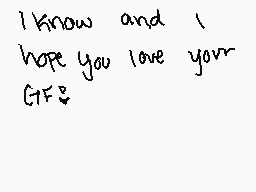 I know and I
hope you love your
GF